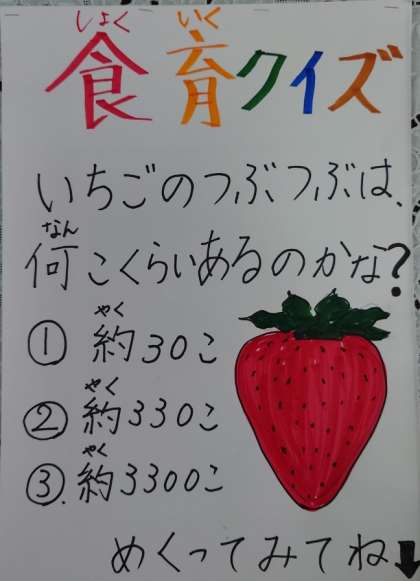 しょく いく
食育クイズ
いちごのつぶつぶは、
なん
何こくらいあるのかな?
やく
① 約30こ
やく
② 約330こ
やく
③. 約3300こ
めくってみてね⬇